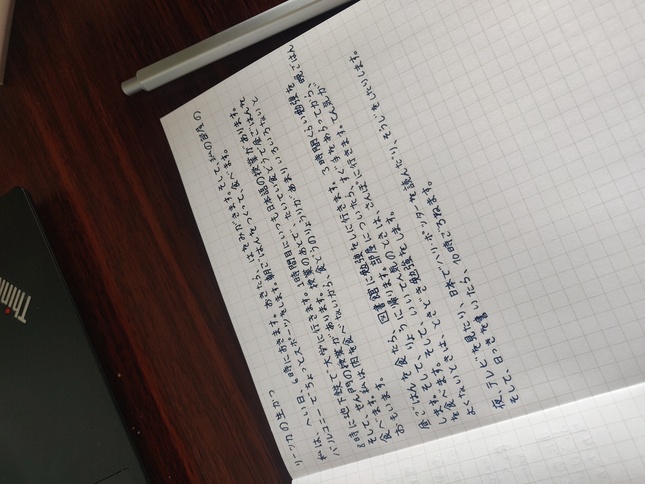 Think
リーッカの生かつ
私は、へい日、6時におきます。おきたら、はをみがきます。そして、私の部屋の
バルコニーでちょっとスポーツをします。朝ごはんをつくって、食べます。
8時に地下鉄で大学に行きます。1時間目にいつも日本語の授業があります。
そして、せん門の授業があります。授業のあとで、たいてい食どうで昼ごはんを
食べます。私は肉を食べないから、食どうのりょうりがあまりいろいろないと
おもいます。
昼ごはんを食たら、図書館に勉強をしに行きます。3時間くらい勉強を
します。そして、りょうに帰ります。部屋についたら、すぐ手をあらってから、晩ごはん
を食べます。そして、いいてん気のときは、さんぽに行きます。てん気が
よくないときは、ときどき勉強をします。
夜、テレビを見たり、日本でハリ・ポッターを読んだり、そうじをしたりします。
そして、日っきを書いたら、10時ごろねます。